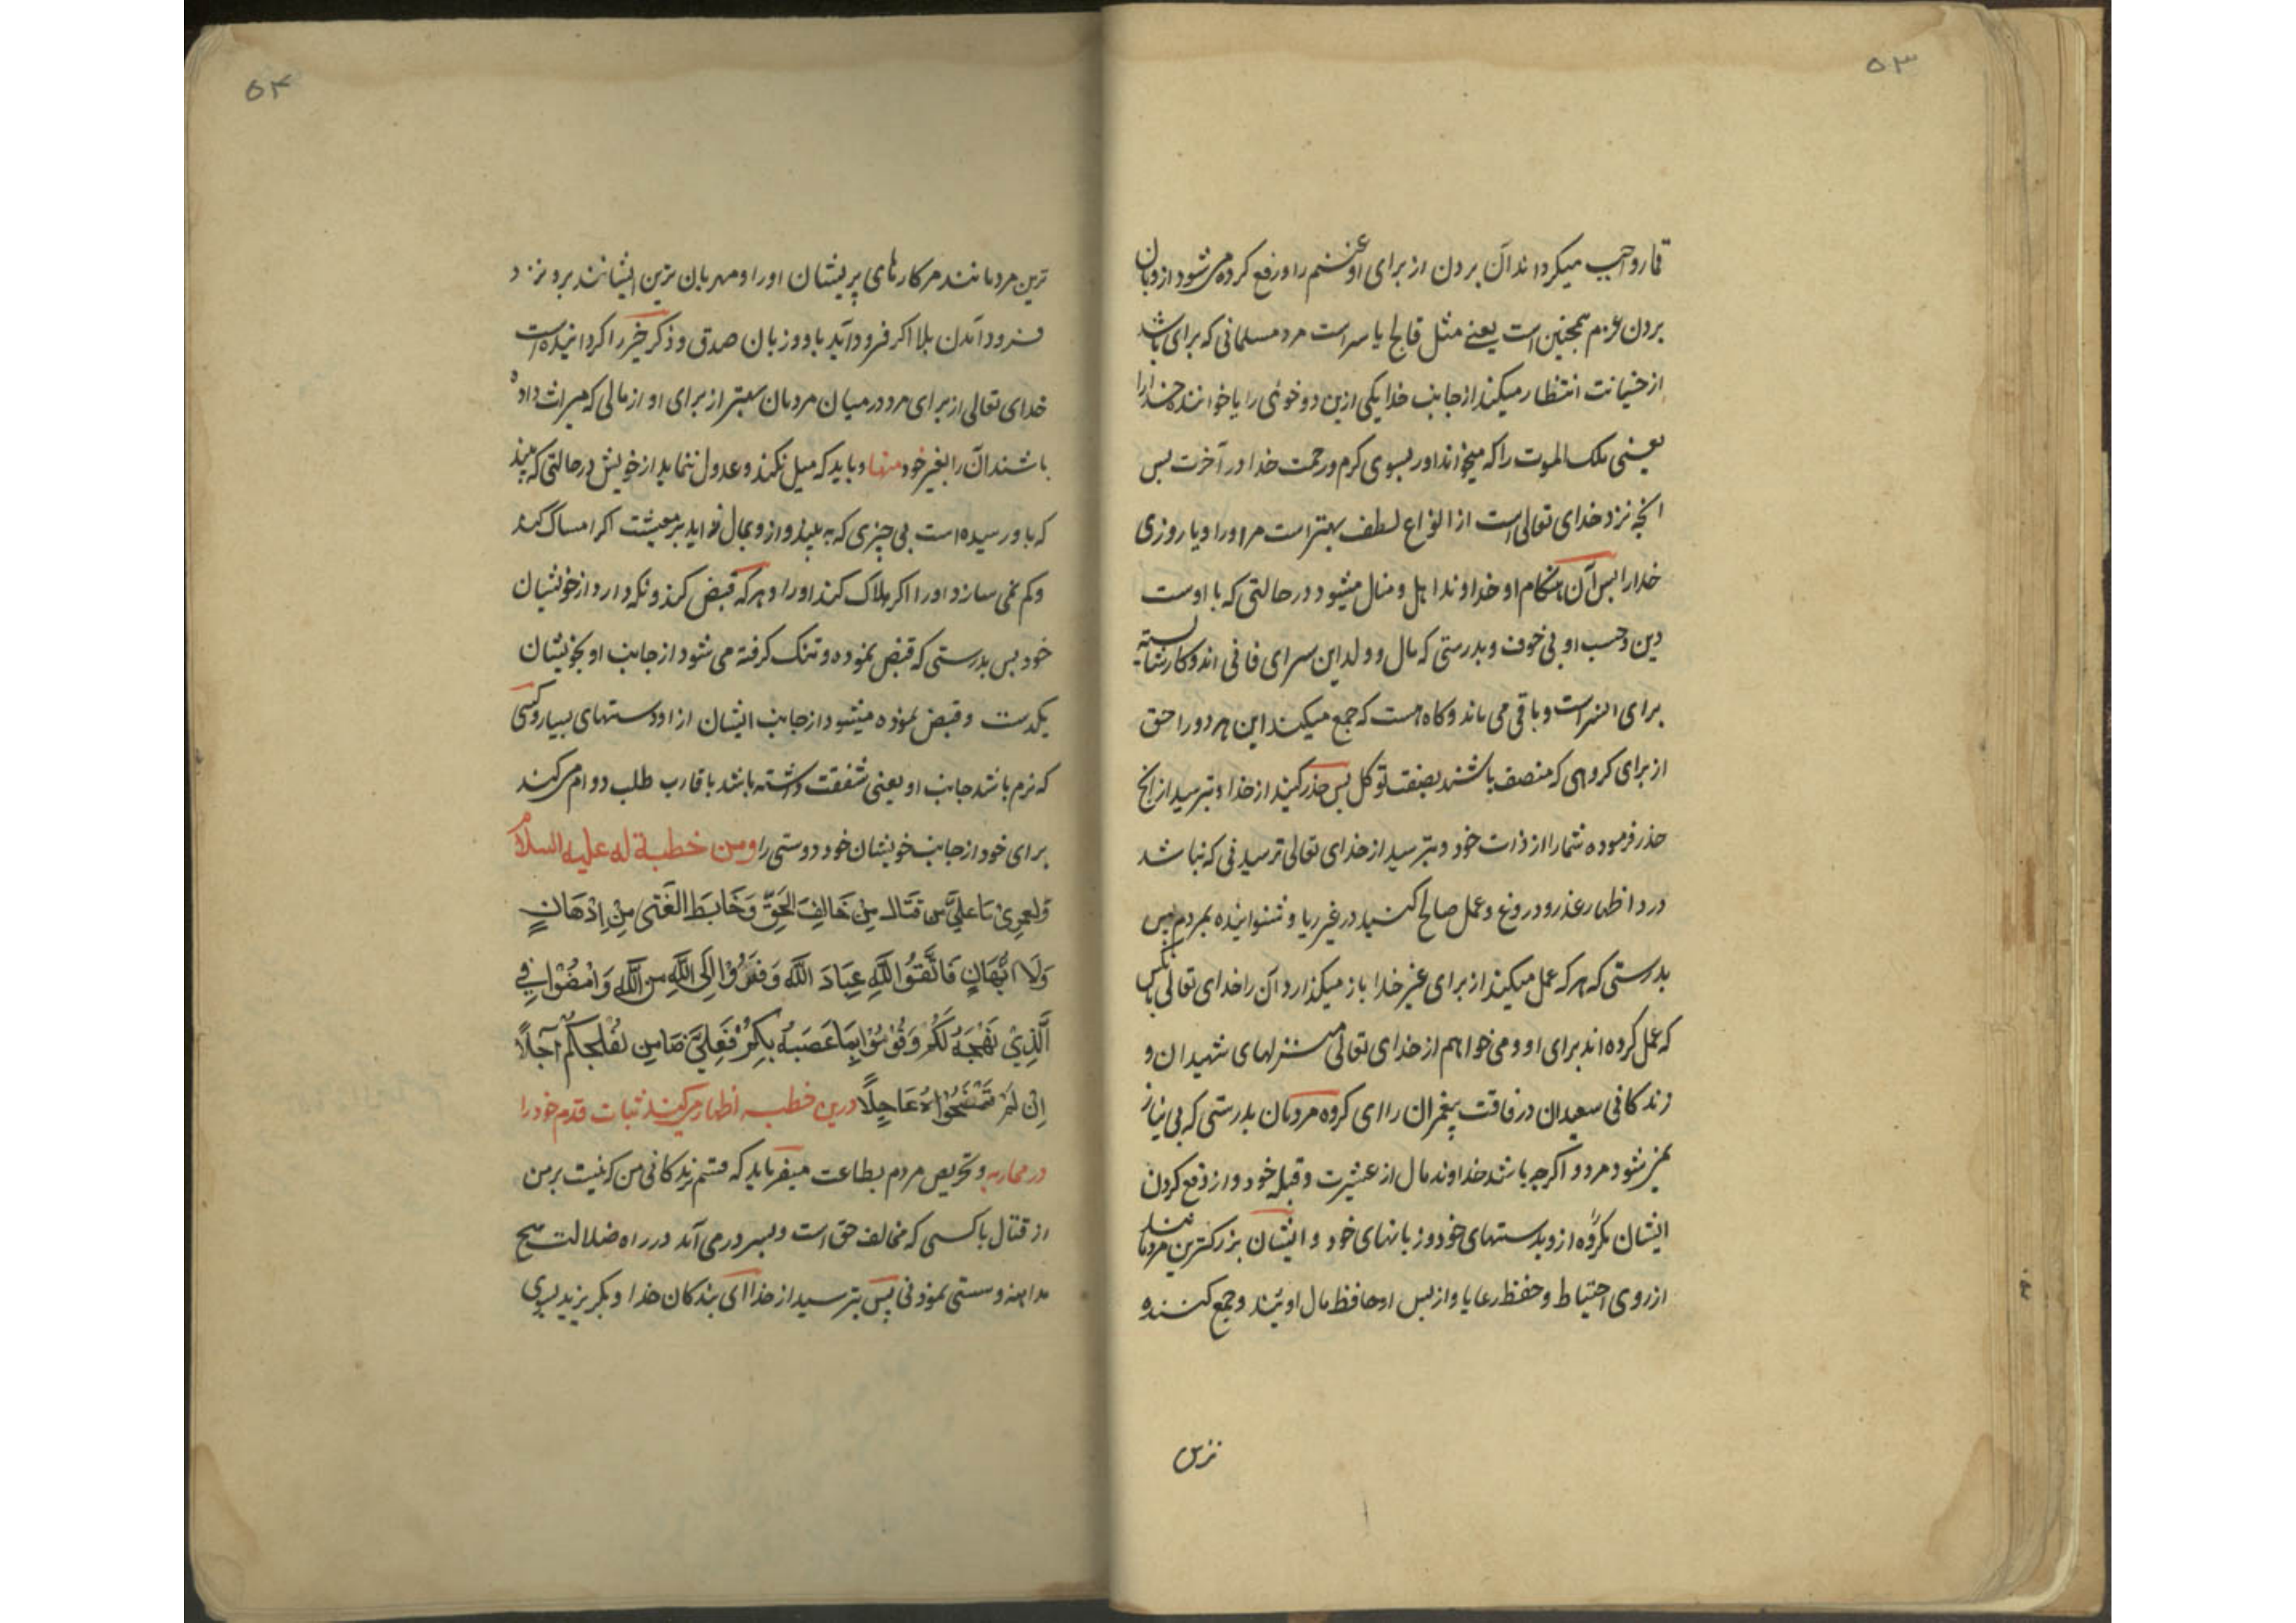 ۵۳
قمار واجب میکرداند آن بردن از برای او غنیم را و رفع کرده می شود از وبان
بردن غرم همچنین است یعنے مثل فالج یاسر است مرد مسلمانی که برای باشد
از خیانت انتظار میکند از جانب خدا یکی ازین دو خوئی را یا خوانندۀ خدا را
یعینی ملک الموت را که میخواند اورا بسوی کرم ورحمت خدا در آخرت بس
انچه نزد خدای تعالی است از انواع لطف بهتر است مر اورا ویا روزی
خدا را بس آن هنکام او خداوند اهل و منال میشود در حالتی که با اوست
دین وحسب او بی خوف و بدرستی که مال و ولد این سرای فانی اند وکار شایسته
برای است و باقی می ماند و کاه هست که جمع میکند این هر دو را حق
از برای کروهی که متصف باشند بصفت توکل بس حذر کنید از خدا وبترسید از انچ
حذر فرموده شما را از ذات خود وبترسید از خدای تعالی ترسیدنی که نباشد
درو اظهار عذر ودروغ وعمل صالح کنید در غیر ریا و شنوانیده بمردم بس
بدرستی که هر که عمل میکند از برای غیر خدا باز میکذارد آن را خدای تعالی بانکس
که عمل کرده اند برای او ومی خواهم از خدای تعالی منزلهای شهیدان و
زندکانی سعیدان در فاقت پیغمبران را ای کروه مردمان بدرستی که بی نیاز
نمیشود مرد و اکرچه باشد خداوند مال از عشیرت وقبیله خود واز دفع کردن
ایشان مکروه از و بدستهای خود وزبانهای خود و ایشان بزرکترین مردمانند
از روی احتیاط وحفظ رعایا واز بس او حافظ مال اویند وجمع کننده
ترین
۵۴
ترین مردمانند مر کارهای پریشان اورا ومهربان ترین ایشانند برو نزد
فرود آمدن بلا اکر فرود آید باو وزبان صدق وذکر خیر را کردانیده است
خدای تعالی از برای مرد در میان مردمان بهتر از برای او از مالی که میراث داده
باشند آن را بغیر خود منها وباید که میل نکند وعدول ننماید از خویش در حالتی که بیند
که باو رسیده است بی چیزی که به بیند واز وبمال نه اید بر معیشت اکر امساک کند
وکم نمی سازد اورا اکر هلاک کند اورا وهرکه قبض کند ونکه دارد از خویشان
خود بس بدرستی که قبض نموده وتنک کرفته می شود از جانب او بخویشان
یکدست وقبض نموده میشود از جانب ایشان از او دستهای بسیار وکسی
که نرم باشد جانب او یعنی شفقت داشته باشد باقارب طلب دوام می کند
برای خود از جانب خویشان خود دوستی را ومن خطبة له علیه السلام
وَلَعَمرِی مَا عَلَیَّ مِن قِتَالِ مَن خَالَفَ الحَقَّ وَخَابَطَ الغَیَّ مِن اِدهَانٍ
وَلَا اِیهَانٍ فَاتَّقُوا اللهَ عِبَادَ اللهِ وَفِرُّوا اِلَی اللهِ مِنَ اللهِ وَامضُوا فِی
الَّذِی نَهَجَهُ لَکُم وَقُومُوا بِمَا عَصَبَهُ بِکُم فَعَلِیٌّ ضَامِنٌ لِفَلجِکُم آجِلاً
اِن لَم تُمنَحُوهُ عَاجِلاً درین خطبه اظهار می کند ثبات قدم خود را
در محاربه وتحریص مردم بطاعت میفرماید که قسم بزندکانی من که نیست بر من
از قتال با کسی که مخالف حق است وبسر در می آید در راه ضلالت هیچ
مداهنه وسستی نمودنی پس بترسید از خدا ای بندکان خدا وبکریزید بسوی